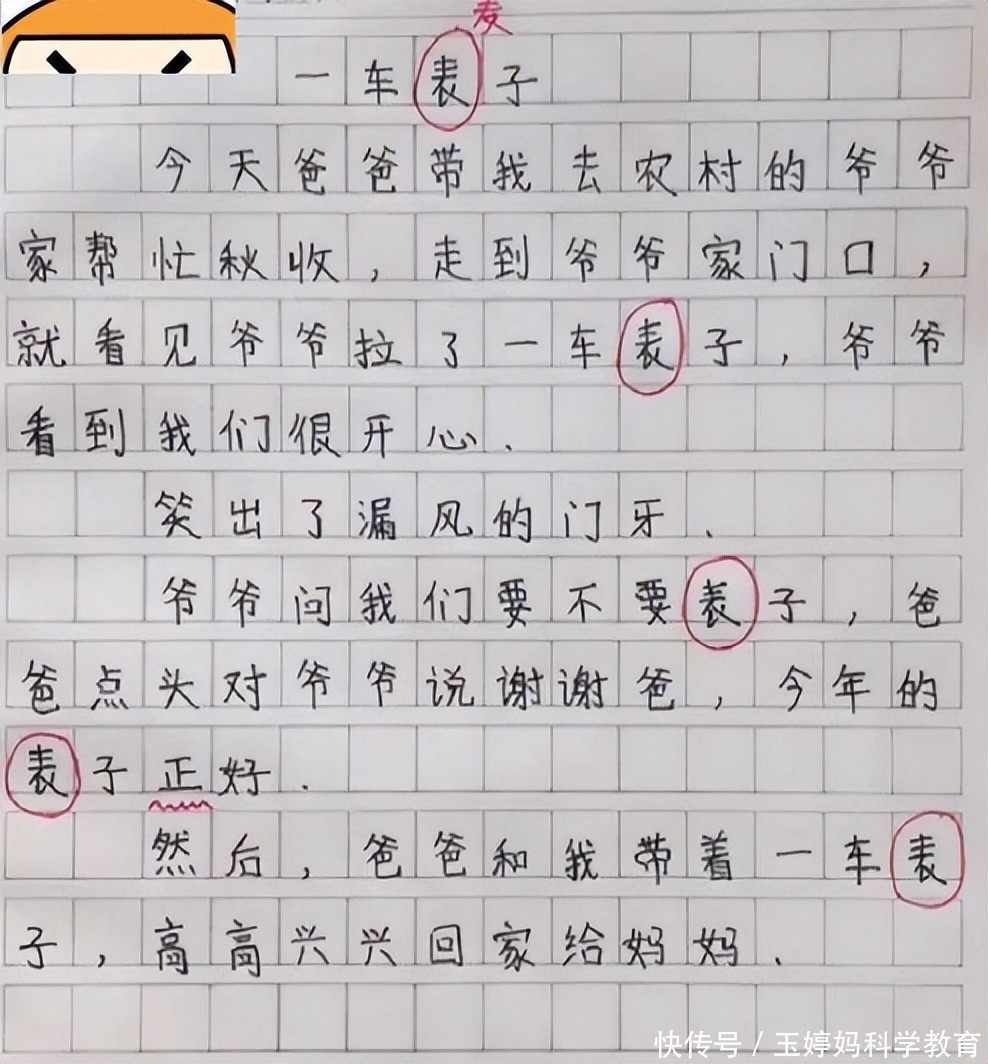 麦
一车表子
今天爸爸带我去农村的爷爷
家帮忙秋收，走到爷爷家门口，
就看见爷爷拉了一车表子，爷爷
看到我们很开心．
笑出了漏风的门牙．
爷爷问我们要不要表子，爸
爸点头对爷爷说谢谢爸，今年的
表子正好．
然后，爸爸和我带着一车表
子，高高兴兴回家给妈妈．
快传号 / 玉婷妈科学教育